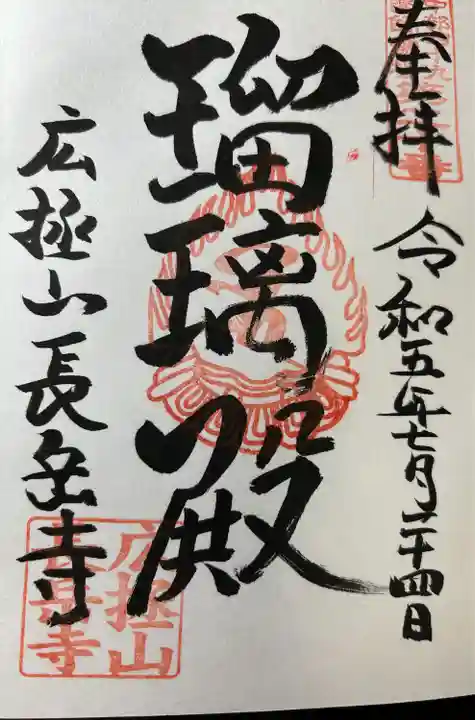 奉拝 令和五年七月二十四日
瑠璃殿
広拯山長岳寺
広拯山
長岳寺